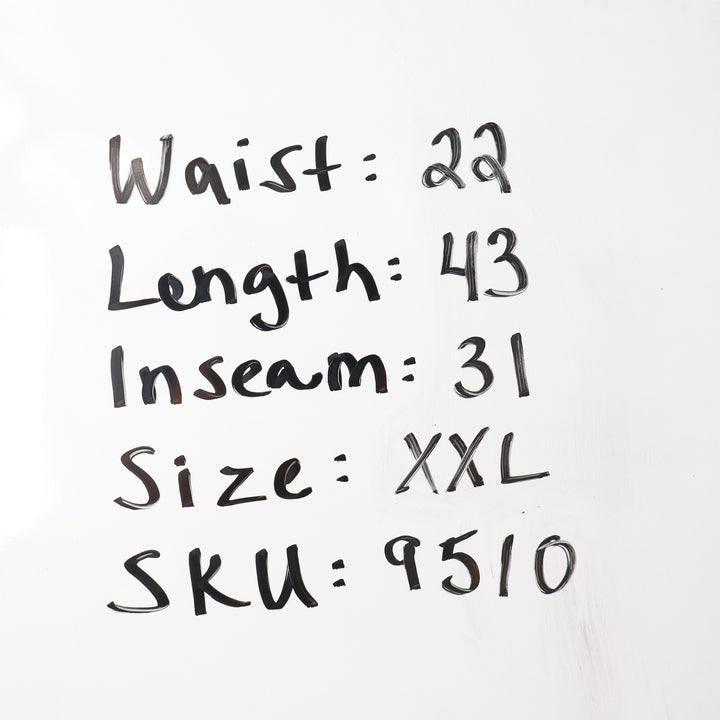 Waist: 22
Length: 43
Inseam: 31
Size: XXL
SKU: 9510